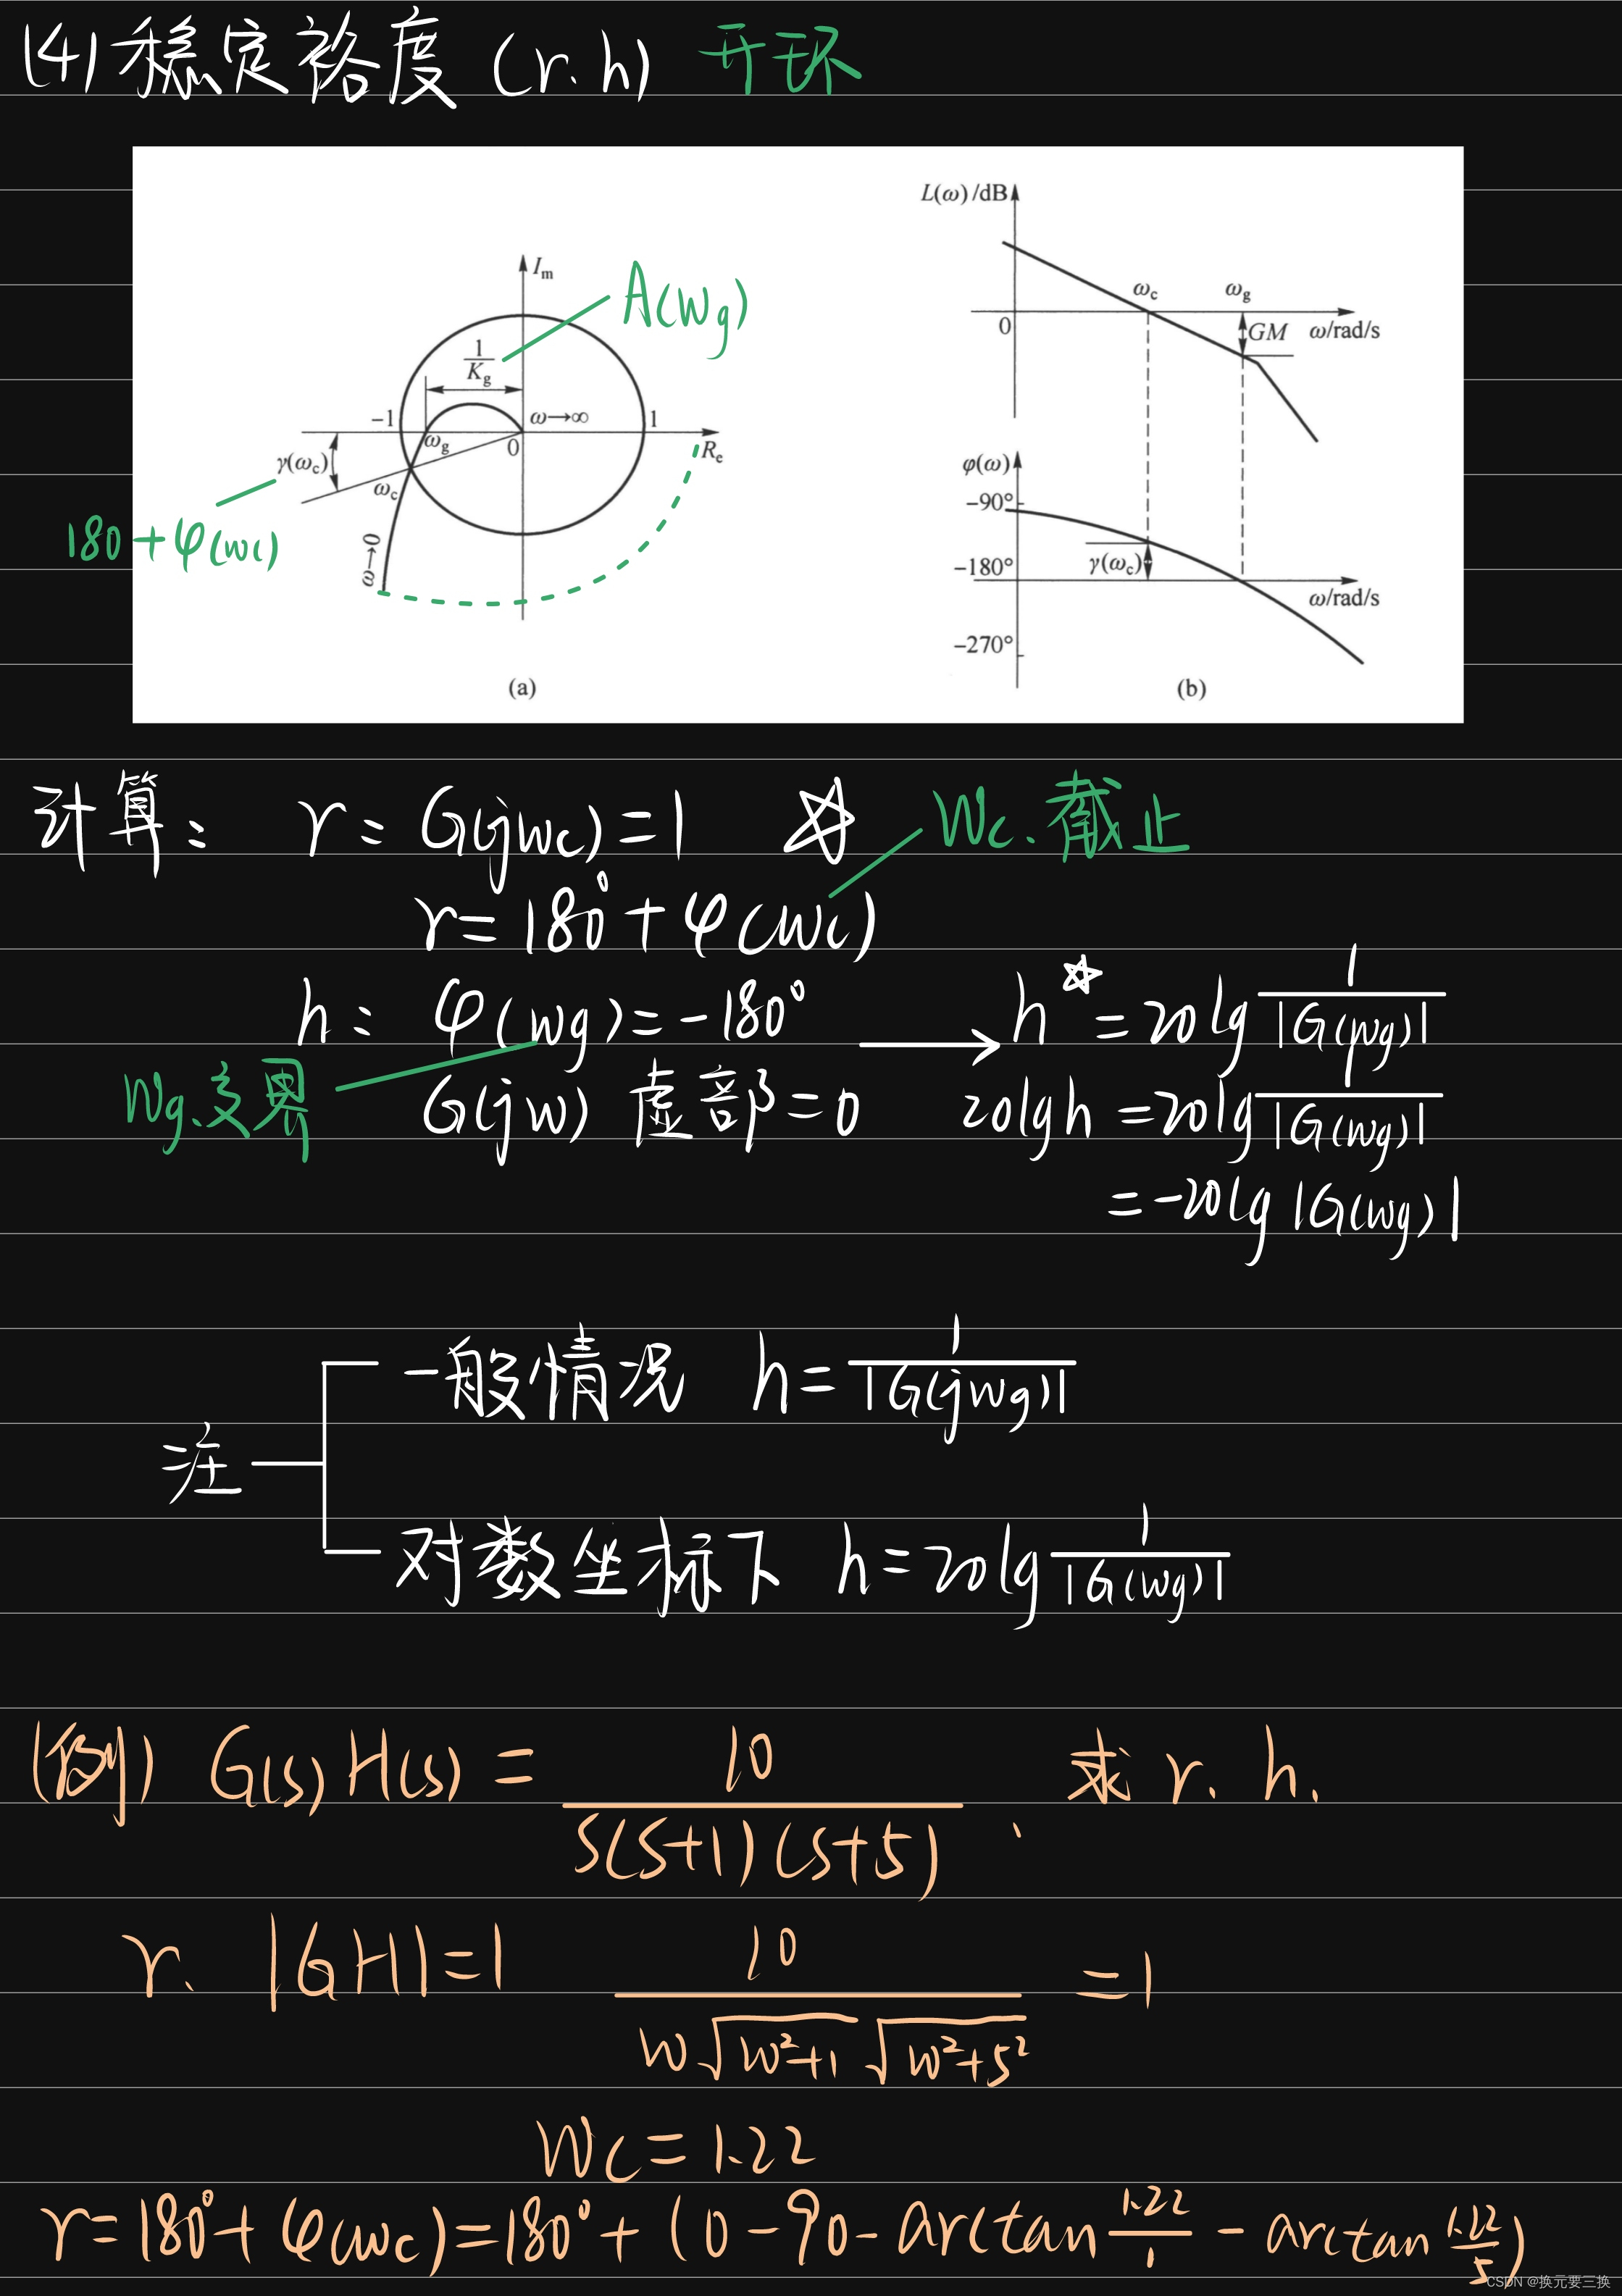 (4) 稳定裕度 (r. h) 开环
L(ω)/dB
Im
A(Wg)
ωc ωg
1/Kg
0 GM ω/rad/s
-1 ω→∞ 1
ωg 0 Re
γ(ωc)
φ(ω)
ωc
-90°
180+φ(wc)
ω→0
-180° γ(ωc)
ω/rad/s
-270°
(a) (b)
计算： r： G(jwc)=1 ☆ Wc.截止
r=180°+φ(wc)
h： φ(wg)=-180° → h☆=20lg 1/|G(jwg)|
Wg.交界 G(jw) 虚部=0 20lgh=20lg 1/|G(wg)|
=-20lg|G(wg)|
一般情况 h=1/|G(jwg)|
注
对数坐标下 h=20lg 1/|G(wg)|
(例) G(s)H(s)=10/S(S+1)(S+5). 求 r. h.
r. |GH|=1 10/w√w²+1 √w²+5² =1
Wc=1.22
r=180°+φ(wc)=180°+(0-90-arctan 1.22/1 - arctan 1.22/5)
CSDN @换元要三换